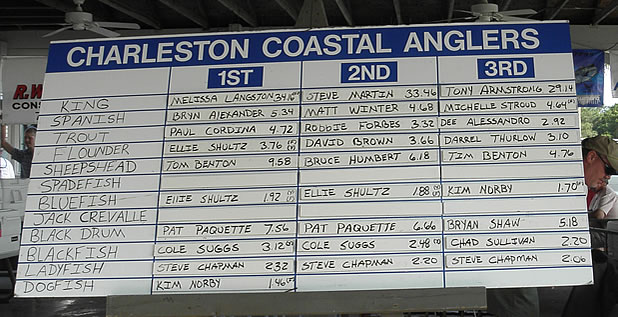 R.W
CONS
CHARLESTON COASTAL ANGLERS
1ST 2ND 3RD
KING MELISSA LANGSTON STEVE MARTIN 33.46 TONY ARMSTRONG 29.14
SPANISH BRYN ALEXANDER 5.34 MATT WINTER 4.68 MICHELLE STROUD 4.64
TROUT PAUL CORDINA 4.72 ROBBIE FORBES 3.32 DEE ALESSANDRO 2.92
FLOUNDER ELLIE SHULTZ 3.76 DAVID BROWN 3.66 DARREL THURLOW 3.10
SHEEPSHEAD TOM BENTON 9.58 BRUCE HUMBERT 6.18 TIM BENTON 4.76
SPADEFISH
BLUEFISH ELLIE SHULTZ 1.92 ELLIE SHULTZ 1.88 KIM NORBY 1.70
JACK CREVALLE
BLACK DRUM PAT PAQUETTE 7.56 PAT PAQUETTE 6.66 BRYAN SHAW 5.18
BLACKFISH COLE SUGGS 3.12 COLE SUGGS 2.48 CHAD SULLIVAN 2.20
LADYFISH STEVE CHAPMAN 2.32 STEVE CHAPMAN 2.20 STEVE CHAPMAN 2.06
DOGFISH KIM NORBY 1.46